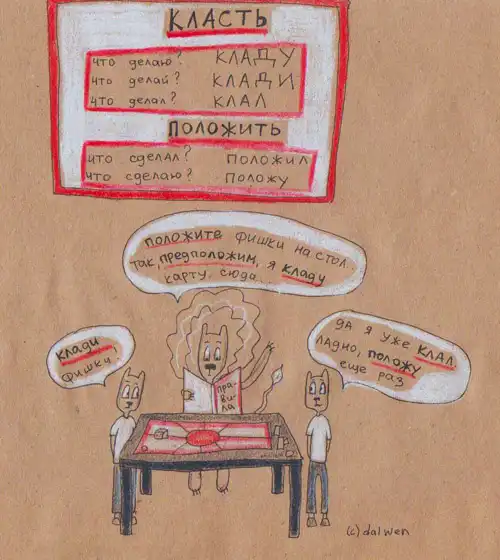 КЛАСТЬ
что делаю? КЛАДУ
что делай? КЛАДИ
что делал? КЛАЛ
ПОЛОЖИТЬ
что сделал? ПОЛОЖИЛ
что сделаю? ПОЛОЖУ
положите фишки на стол.
Так, предположим, я кладу
карту сюда...
клади
фишки!
да я уже клал
ладно, положу
еще раз
пра-
ви-
ла
(c) dalwen